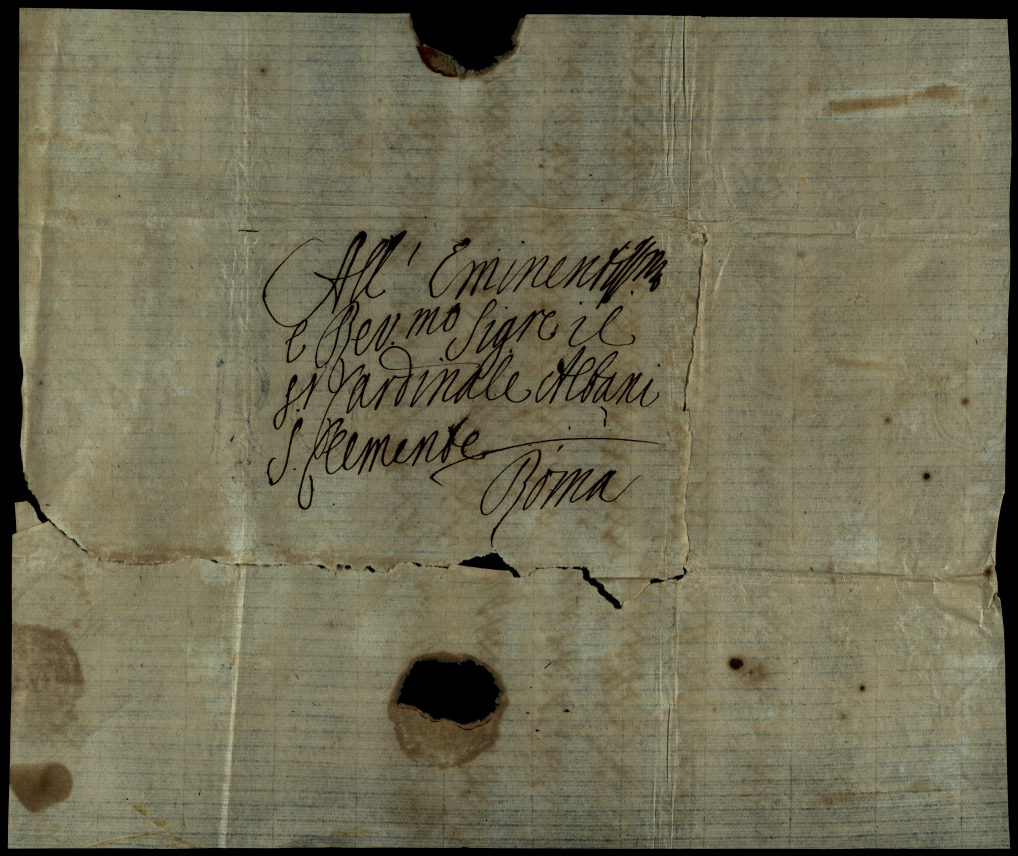 All' Eminentissmo
e Rev.mo Sigre il
Sr Cardinale Albani
S. Clemente
Roma